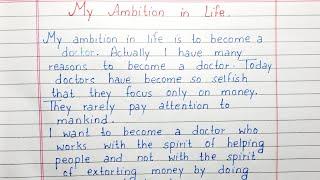 My Ambition in Life.
My ambition in life is to become a
doctor. Actually I have many
reasons to become a doctor. Today
doctors have become so selfish
that they focus only on money.
They rarely pay attention to
mankind.
I want to become a doctor who
works with the spirit of helping
people and not with the spirit
of extorting money by doing